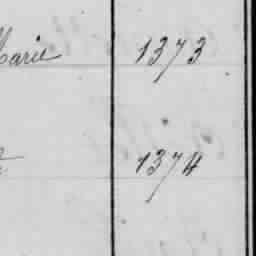 Marie 1373
1374